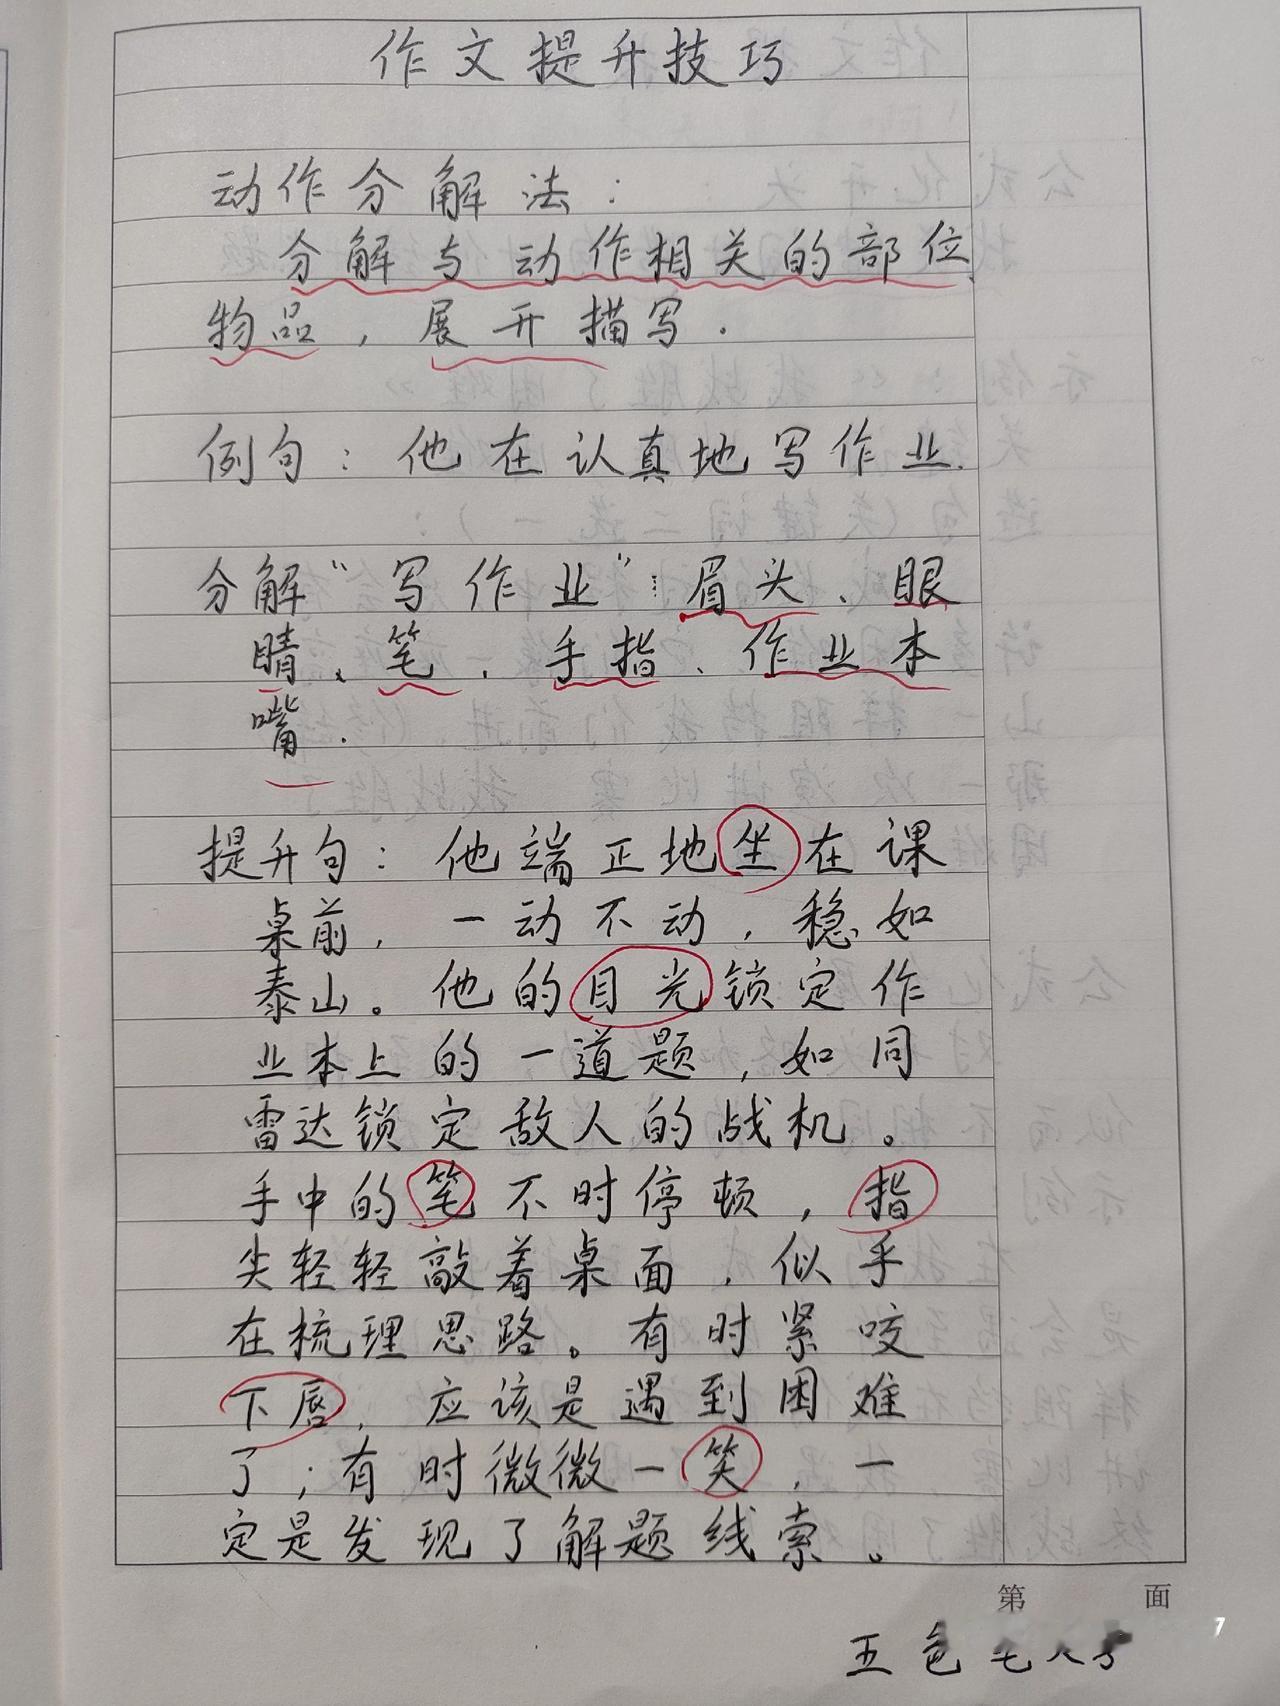 作文提升技巧
动作分解法：
分解与动作相关的部位、
物品，展开描写.
例句：他在认真地写作业.
分解“写作业”：眉头、眼
睛、笔、手指、作业本
嘴.
提升句：他端正地坐在课
桌前，一动不动，稳如
泰山。他的目光锁定作
业本上的一道题，如同
雷达锁定敌人的战机。
手中的笔不时停顿，指
尖轻轻敲着桌面，似乎
在梳理思路。有时紧咬
下唇，应该是遇到困难
了；有时微微一笑，一
定是发现了解题线索。
第 面
五色